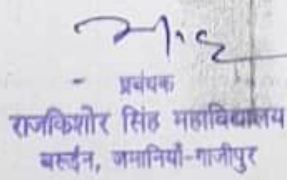 प्रबंधक
राजकिशोर सिंह महाविद्यालय
बरूईन, जमानियाँ-गाजीपुर